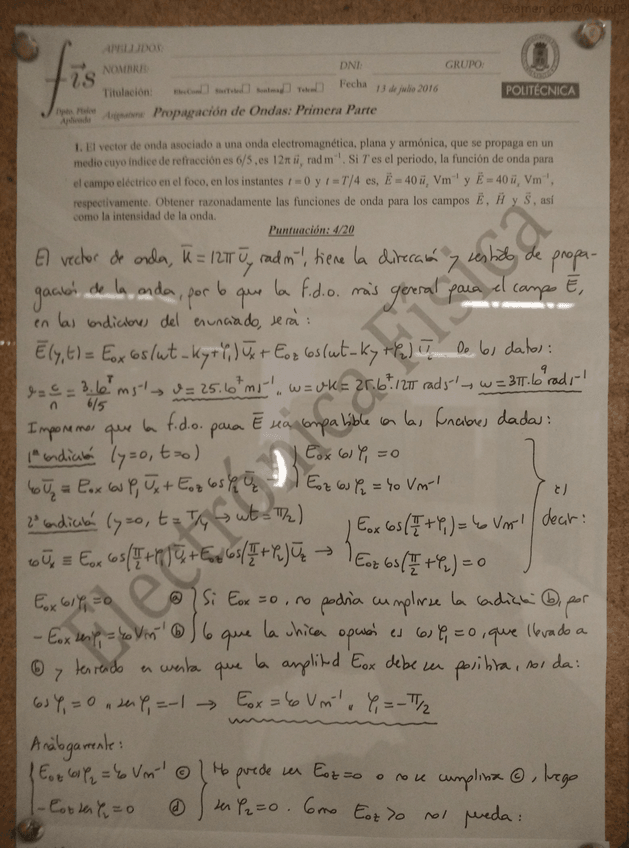 Examen por
fis
Dpto. Física
Aplicada
APELLIDOS:
NOMBRE:
DNI:
GRUPO:
Titulación:
Fecha 13 de julio 2016
Asignatura: Propagación de Ondas: Primera Parte
POLITÉCNICA
1. El vector de onda asociado a una onda electromagnética, plana y armónica, que se propaga en un
medio cuyo índice de refracción es 6/5, es 12π u⃗y rad m⁻¹. Si T es el periodo, la función de onda para
el campo eléctrico en el foco, en los instantes t = 0 y t = T/4 es, E⃗ = 40 u⃗z Vm⁻¹ y E⃗ = 40 u⃗x Vm⁻¹,
respectivamente. Obtener razonadamente las funciones de onda para los campos E⃗, H⃗ y S⃗, así
como la intensidad de la onda.
Puntuación: 4/20
El vector de onda, K̄ = 12π ūy rad m⁻¹, tiene la dirección y sentido de propa-
gación de la onda, por lo que la f.d.o. más general para el campo Ē,
en las condiciones del enunciado, será:
Ē(y,t) = Eox cos(ωt - ky + φ₁) ūx + Eoz cos(ωt - ky + φ₂) ūz. De los datos:
v = c/n = 3·10⁸/(6/5) m s⁻¹ → v = 25·10⁷ m s⁻¹ „ ω = vk = 25·10⁷·12π rad s⁻¹ → ω = 3π·10⁹ rad s⁻¹
Imponemos que la f.d.o. para Ē sea compatible con las funciones dadas:
1ª condición (y=0, t=0)
40 ūz ≡ Eox cos φ₁ ūx + Eoz cos φ₂ ūz → { Eox cos φ₁ = 0
Eoz cos φ₂ = 40 Vm⁻¹
2ª condición (y=0, t=T/4 → ωt = π/2)
40 ūx ≡ Eox cos(π/2 + φ₁) ūx + Eoz cos(π/2 + φ₂) ūz → { Eox cos(π/2 + φ₁) = 40 Vm⁻¹
Eoz cos(π/2 + φ₂) = 0
} es decir:
Eox cos φ₁ = 0 ⓐ } Si Eox = 0, no podría cumplirse la condición ⓑ, por
- Eox sen φ₁ = 40 Vm⁻¹ ⓑ } lo que la única opción es cos φ₁ = 0, que llevado a
ⓑ y teniendo en cuenta que la amplitud Eox debe ser positiva, nos da:
cos φ₁ = 0 „ sen φ₁ = -1 → Eox = 40 Vm⁻¹ „ φ₁ = -π/2
Análogamente:
{ Eoz cos φ₂ = 40 Vm⁻¹ ⓒ } No puede ser Eoz = 0 o no se cumpliría ⓒ, luego
- Eoz sen φ₂ = 0 ⓓ } sen φ₂ = 0. Como Eoz > 0 nos queda:
Electrónica Física